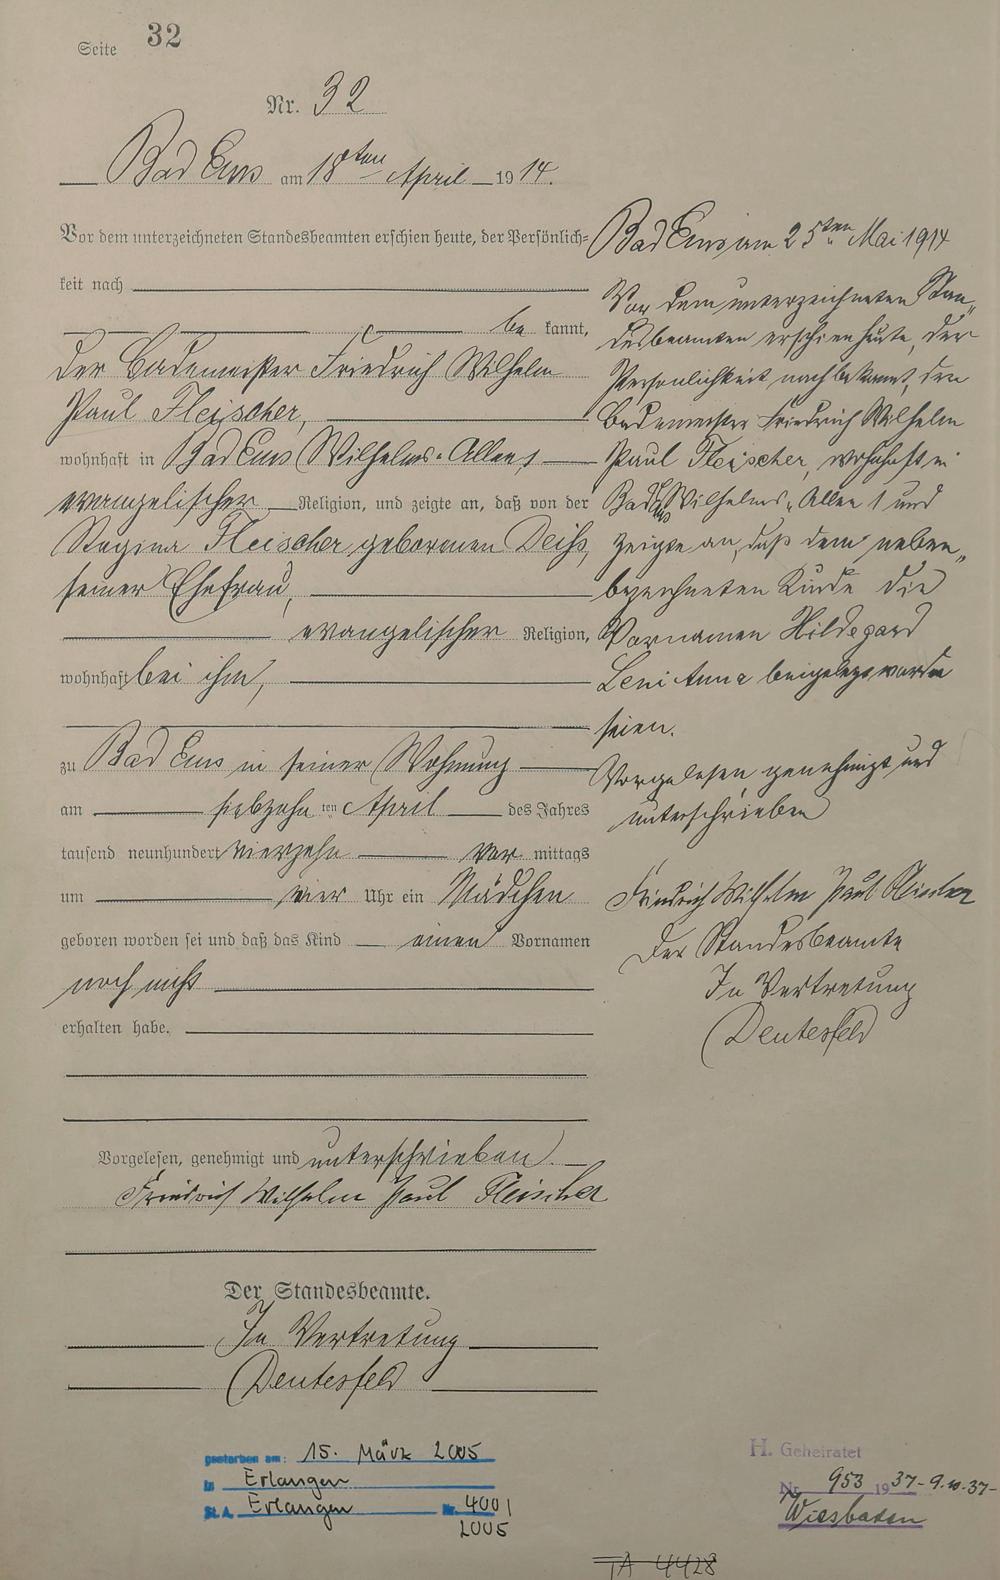 Seite 32
Nr. 32
Bad Ems am 18ten April 1914.
Vor dem unterzeichneten Standesbeamten erschien heute, der Persönlich-
keit nach
be kannt,
der Bademeister Friedrich Wilhelm
Paul Fleischer,
wohnhaft in Bad Ems Wilhelms-Allee 1
evangelischer Religion, und zeigte an, daß von der
Regina Fleischer geborenen Deiß,
seiner Ehefrau,
evangelischer Religion,
wohnhaft bei ihm,
zu Bad Ems in seiner Wohnung
am siebzehn ten April des Jahres
tausend neunhundert vierzehn vor mittags
um vier Uhr ein Mädchen
geboren worden sei und daß das Kind einen Vornamen
noch nicht
erhalten habe.
Vorgelesen, genehmigt und unterschrieben.
Friedrich Wilhelm Paul Fleischer
Der Standesbeamte.
In Vertretung
Deutesfeld
Bad Ems am 25ten Mai 1914
Vor dem unterzeichneten Stan„
desbeamten erschien heute, der
Persönlichkeit nach bekannt, der
Bademeister Friedrich Wilhelm
Paul Fleischer, wohnhaft in
Bad Ems Wilhelms-Allee 1 und
zeigte an, daß dem neben„
bezeichneten Kinde die
Vornamen Hildegard
Leni Anna beigelegt worden
seien.
Vorgelesen, genehmigt und
unterschrieben
Friedrich Wilhelm Paul Fleischer
Der Standesbeamte
In Vertretung
Deutesfeld
gestorben am: 15. März 2005
in Erlangen
St. A. Erlangen Nr. 4001
2005
H. Geheiratet
Nr. 953 1937 - 9.10.37 -
Wiesbaden
TA 4428